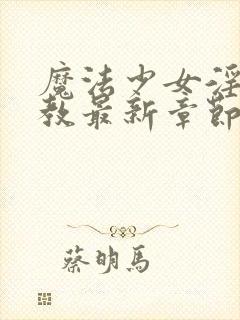 魔法少女淫
教最新章節
蔡明馬